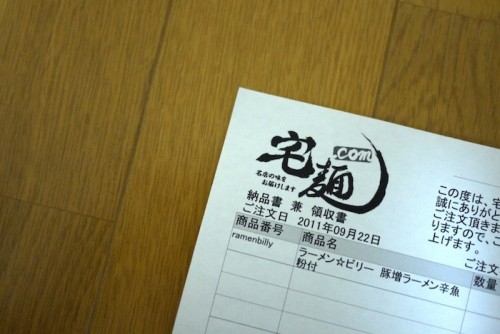 宅麺
.com
名店の味を
お届けします
納品書 兼 領収書
ご注文日 2011年09月22日
この度は、宅
誠にありがと
ご注文頂きま
りますので、ご
上げます。
ご注文
商品番号 商品名 数量
ramenbilly ラーメン☆ビリー 豚増ラーメン辛魚
粉付